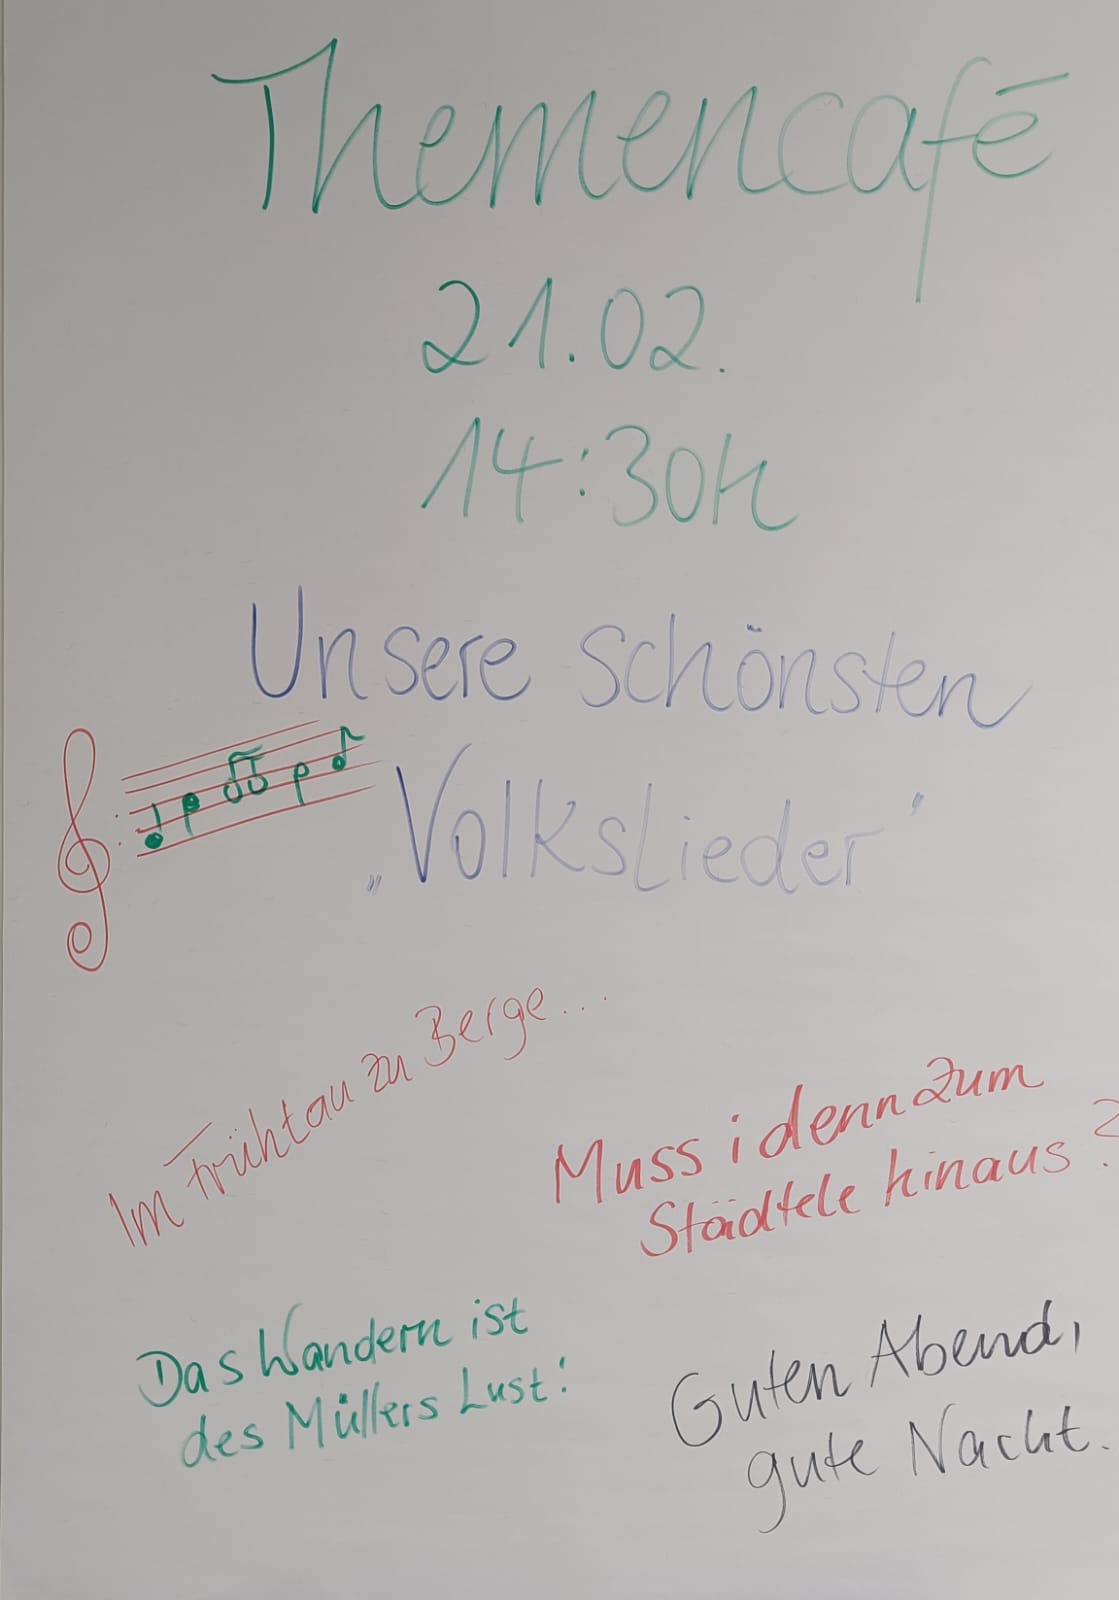 Themencafé
21.02.
14:30h
Unsere schönsten
„Volkslieder"
Im Frühtau zu Berge...
Muss i denn zum
Städtele hinaus?
Das Wandern ist
des Müllers Lust!
Guten Abend,
gute Nacht.